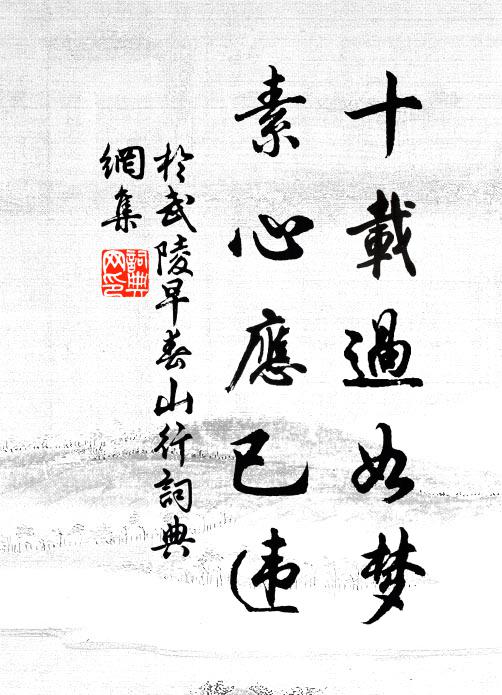 十載過如梦
素心應已违
於武陵早春山行詞典
網集
詞典網印